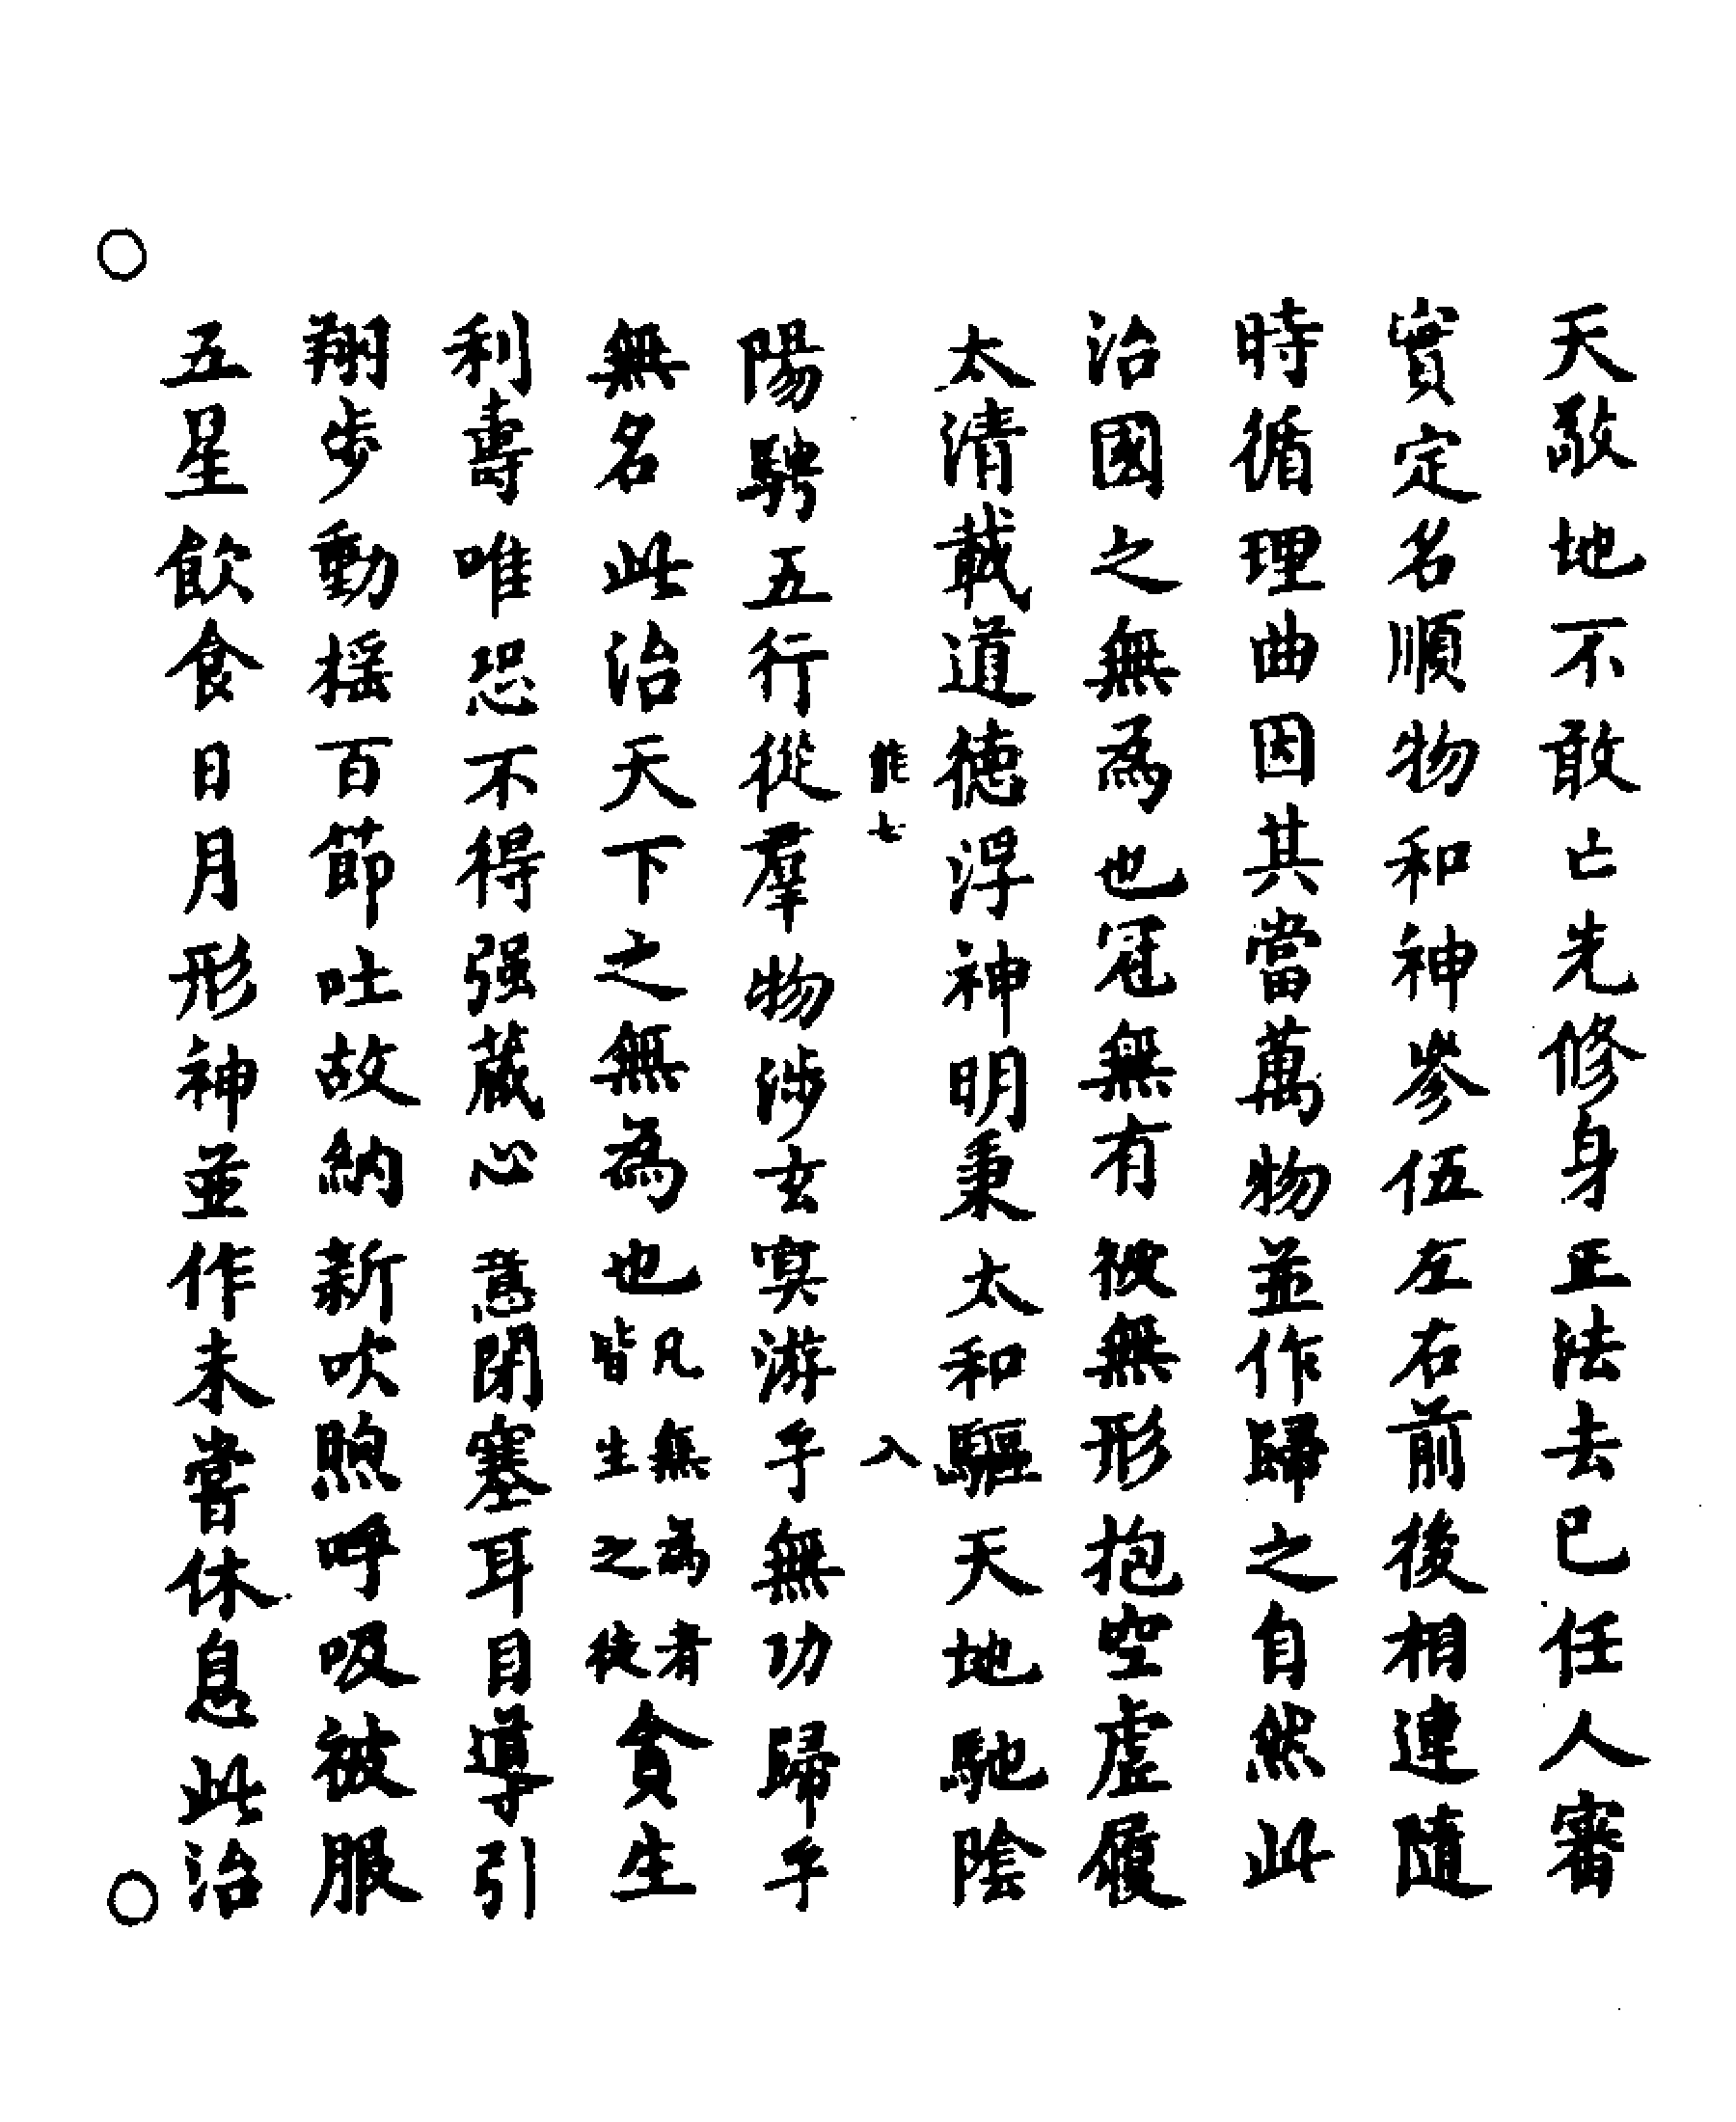 天敬地不敢亡先修身正法去已任人審
實定名順物和神參伍左右前後相連隨
時循理曲因其當萬物並作歸之自然此
治國之無為也冠無有被無形抱空虛履
太清載道德浮神明秉太和驅天地馳陰
入
陽騁五行從羣物涉玄冥游乎無功歸乎
無名此治天下之無為也凡無為者皆生之徒貪生
利壽唯恐不得强藏心意閉塞耳目導引
翔步動摇百節吐故納新吹煦呼吸被服
五星飲食日月形神並作未嘗休息此治